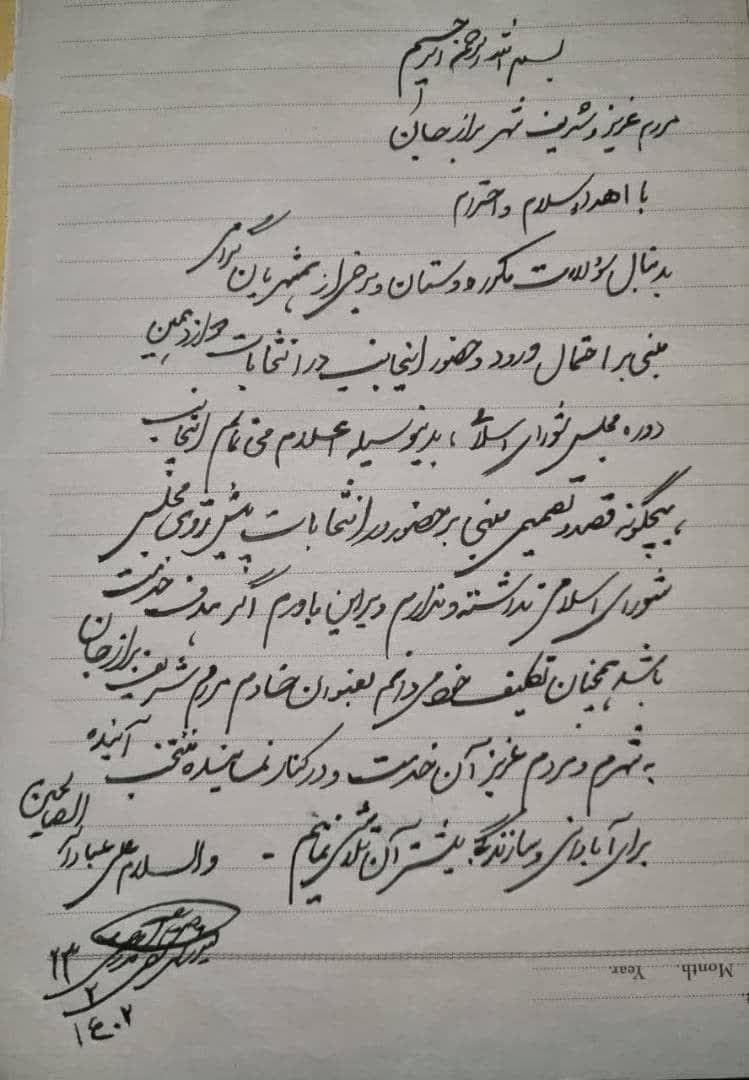 بسم الله الرحمن الرحیم
مردم عزیز و شریف شهر برازجان
با اهداء سلام و احترام
بدنبال سؤالات مکرر دوستان و برخی از همشهریان گرامی
مبنی بر احتمال ورود و حضور اینجانب در انتخابات دوازدهمین
دوره مجلس شورای اسلامی، بدینوسیله اعلام می نمایم اینجانب
هیچگونه قصد و تصمیمی مبنی بر حضور در انتخابات پیش روی مجلس
شورای اسلامی نداشته و ندارم و براین باورم اگر هدف خدمت
باشد همچنان تکلیف خود می دانم بعنوان خادم مردم شریف برازجان
به شهرم و مردم عزیز آن خدمت و در کنار نماینده منتخب آینده
برای آبادانی و سازندگی بیشتر آن تلاش نمایم - والسلام علی عباد الله الصالحین
۲۳
۲
۱۴۰۲
Month Year